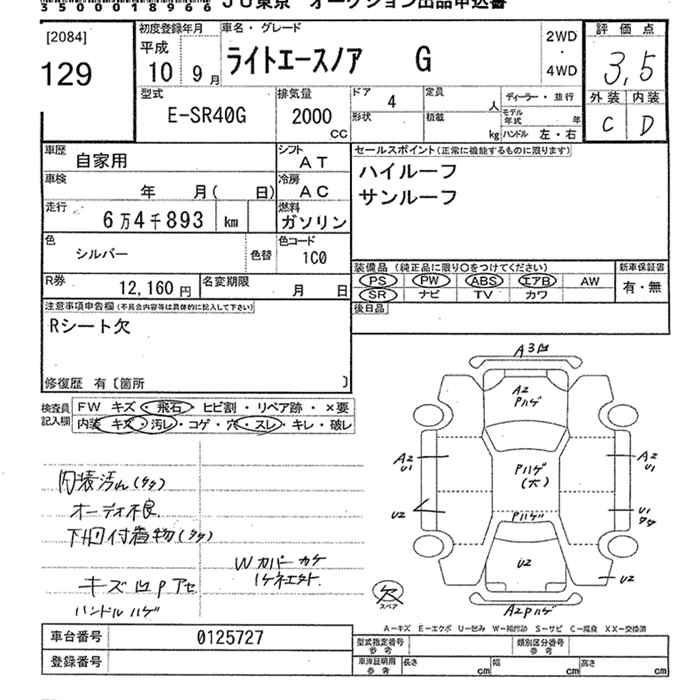 350001896​6 JU東京 オークション出品申込書
[2084]
129
初度登録年月
平成
10 9月
車名・グレード
ライトエースノア G
2WD
・
4WD
評価点
3,5
外装 内装
C D
型式
E-SR40G
排気量
2000
CC
ドア
4
定員
人
形状
積載
kg
ディーラー・並行
モデル
年式
年
ハンドル 左・右
車歴
自家用
シフト
AT
車検
年 月( 日)
冷房
AC
走行
6万4千893 km
燃料
ガソリン
色
シルバー
色替
色コード
1C0
R券
12,160円
名変期限
月 日
セールスポイント(正常に機能するものに限ります)
ハイルーフ
サンルーフ
装備品(純正品に限り○をつけてください)
PS PW ABS エアB AW
SR ナビ TV カワ
新車保証書
有・無
後日品
注意事項申告欄(不具合内容等は具体的に記入して下さい)
Rシート欠
修復歴 有〔箇所 〕
検査員
記入欄
FW キズ・飛石・ヒビ割・リペア跡・×要
内装 キズ・汚レ・コゲ・穴・スレ・キレ・破レ
内装汚れ(タタ)
オーディオ不良
下回付着物(タタ)
キズ凹Pアセ
ハンドルハゲ
Wカバーカケ
A3凹
A2
Pハゲ
A2
U1
Pハゲ
(大)
A2
U1
U2
Pハゲ
U1
U2
U2
A2Pハゲ
欠
スペア
A-キズ E-エクボ U-凹み W-補修跡 S-サビ C-腐食 XX-交換済
車台番号
0125727
登録番号
型式指定番号
参考
類別区分番号
参考
車庫証明用
参考
長さ cm 幅 cm 高さ cm